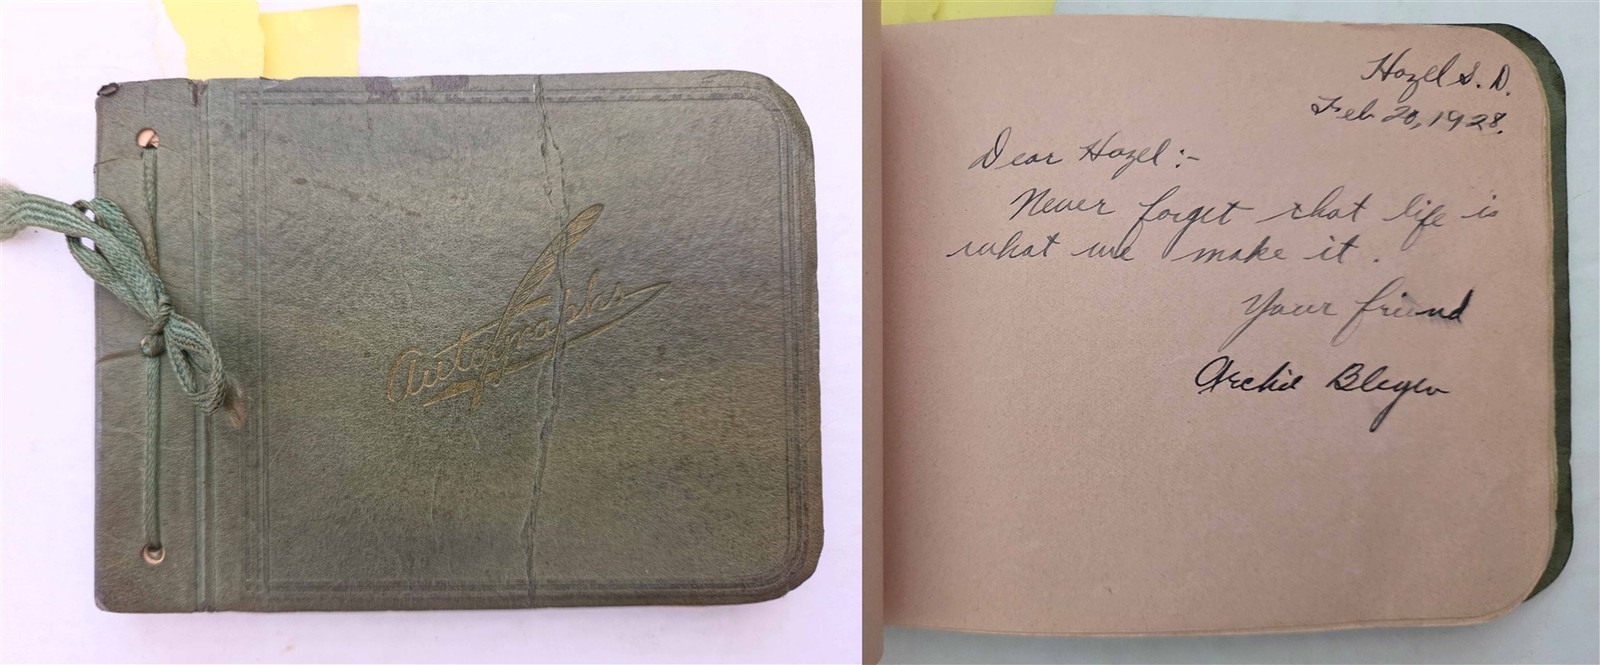 Autographs
Hazel S. D.
Feb 20, 1928.
Dear Hazel :-
Never forget that life is
what we make it.
Your friend
Archie